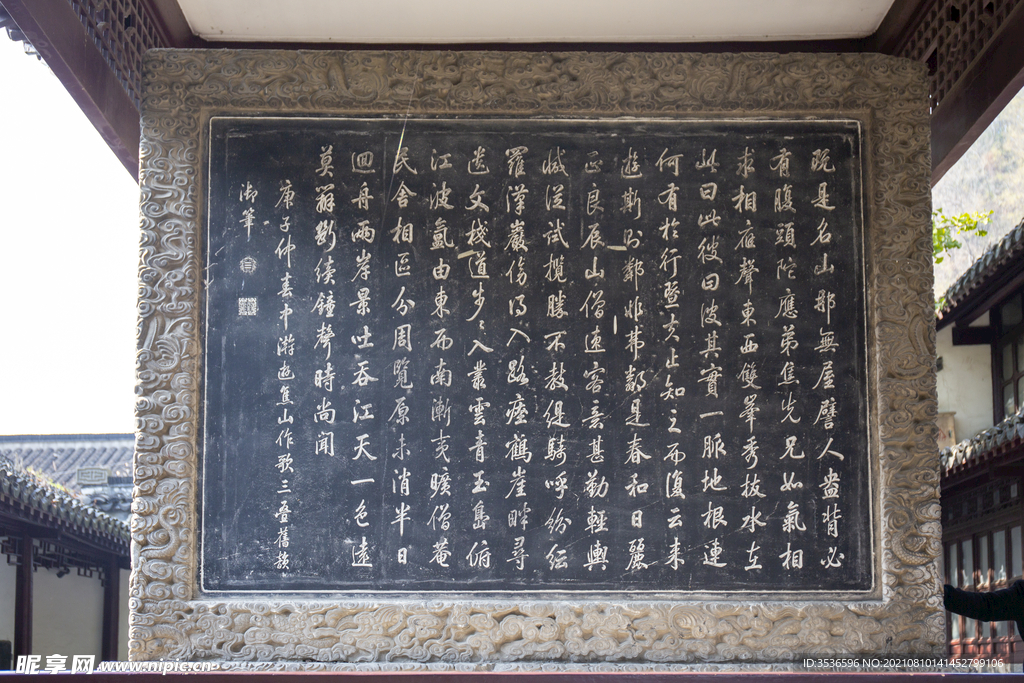 既是名山那無屋譬人盎背必
有腹頭陀應弟焦先兄如氣相
求相應聲東西雙峯秀拔水立
此曰此彼曰彼其實一脈地根連
何有於行暨去止知之而復云来
遊斯則鄰非昔龄是春和日麗
正良辰山僧速客意甚勤輕輿
减從試攬勝不教緹騎呼紛紜
羅漢巖傍得入路瘞鶴崖畔尋
遺文棧道步入叢雲青玉島俯
江波氫由東而南漸夷曠僧菴
民舍相區分周覽原未消半日
迴舟兩岸景吐吞江天一色遠
莫辭斷續鐘聲時尚聞
庚子仲春中澣遊焦山作歌三疊舊韻
御筆
昵享网 www.nipic.cn
ID:3536596 NO:20210810141452799106